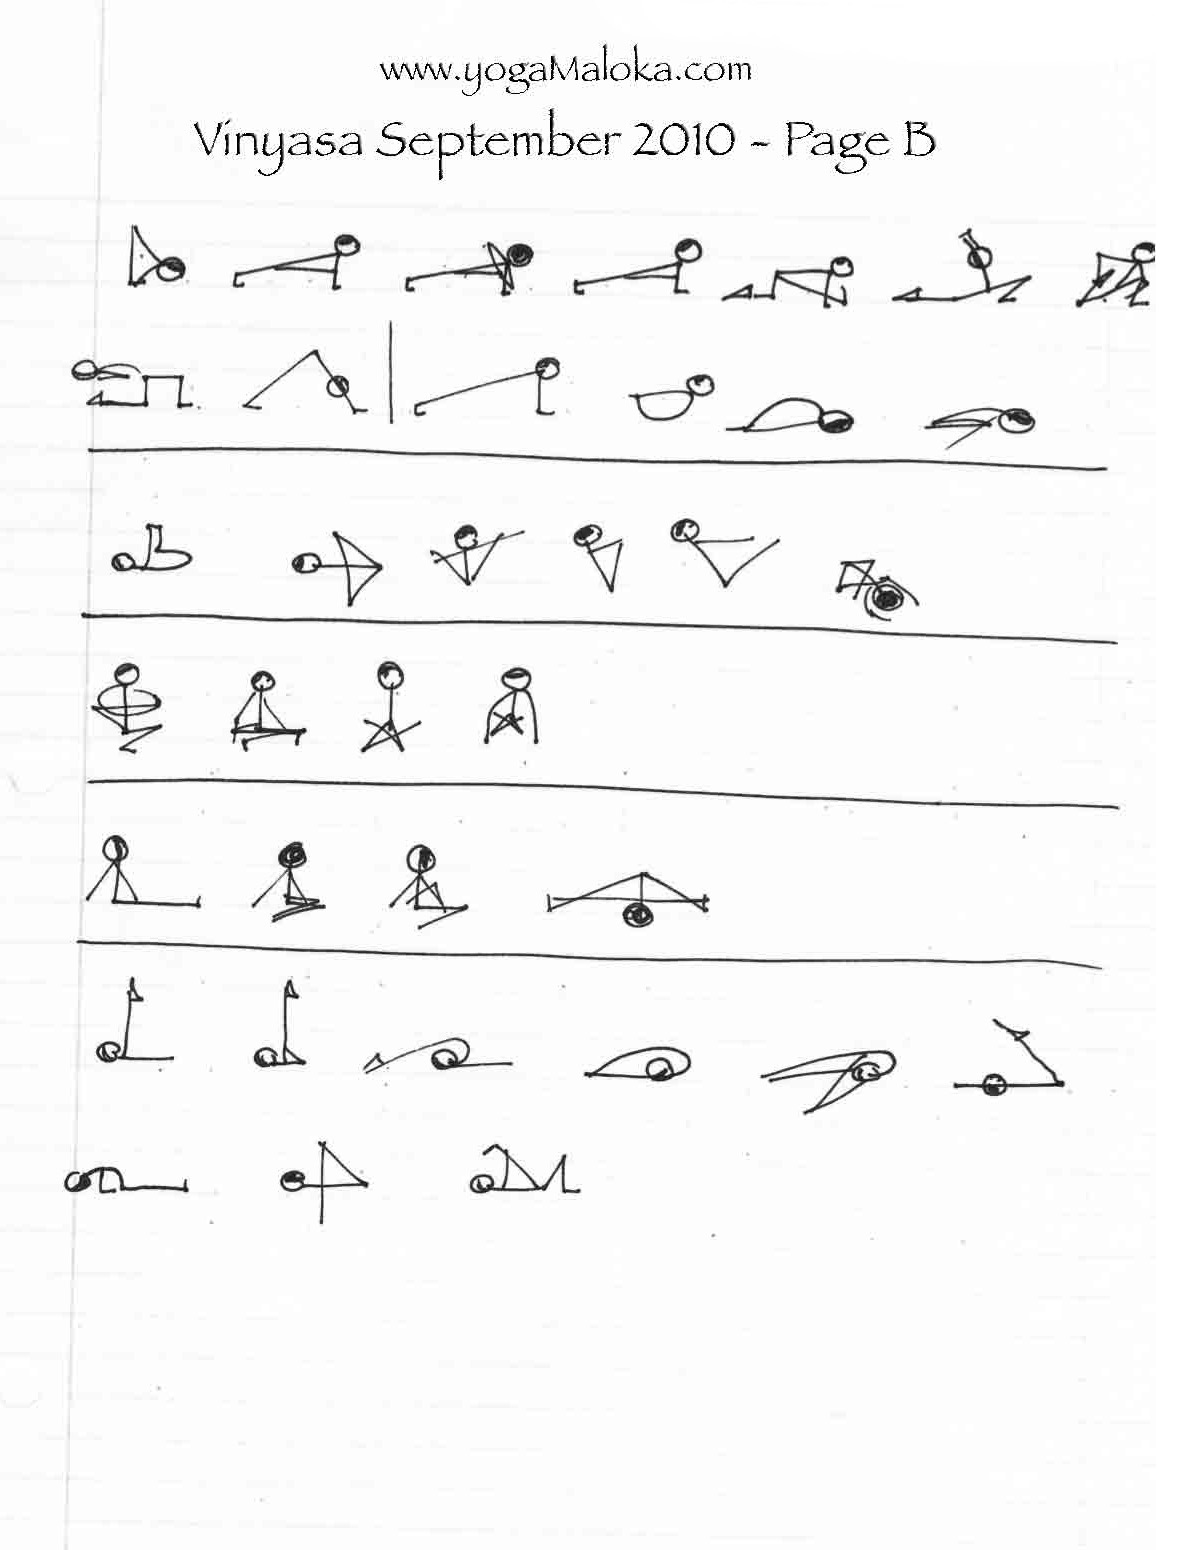 www.yogaMaloka.com
Vinyasa September 2010 - Page B